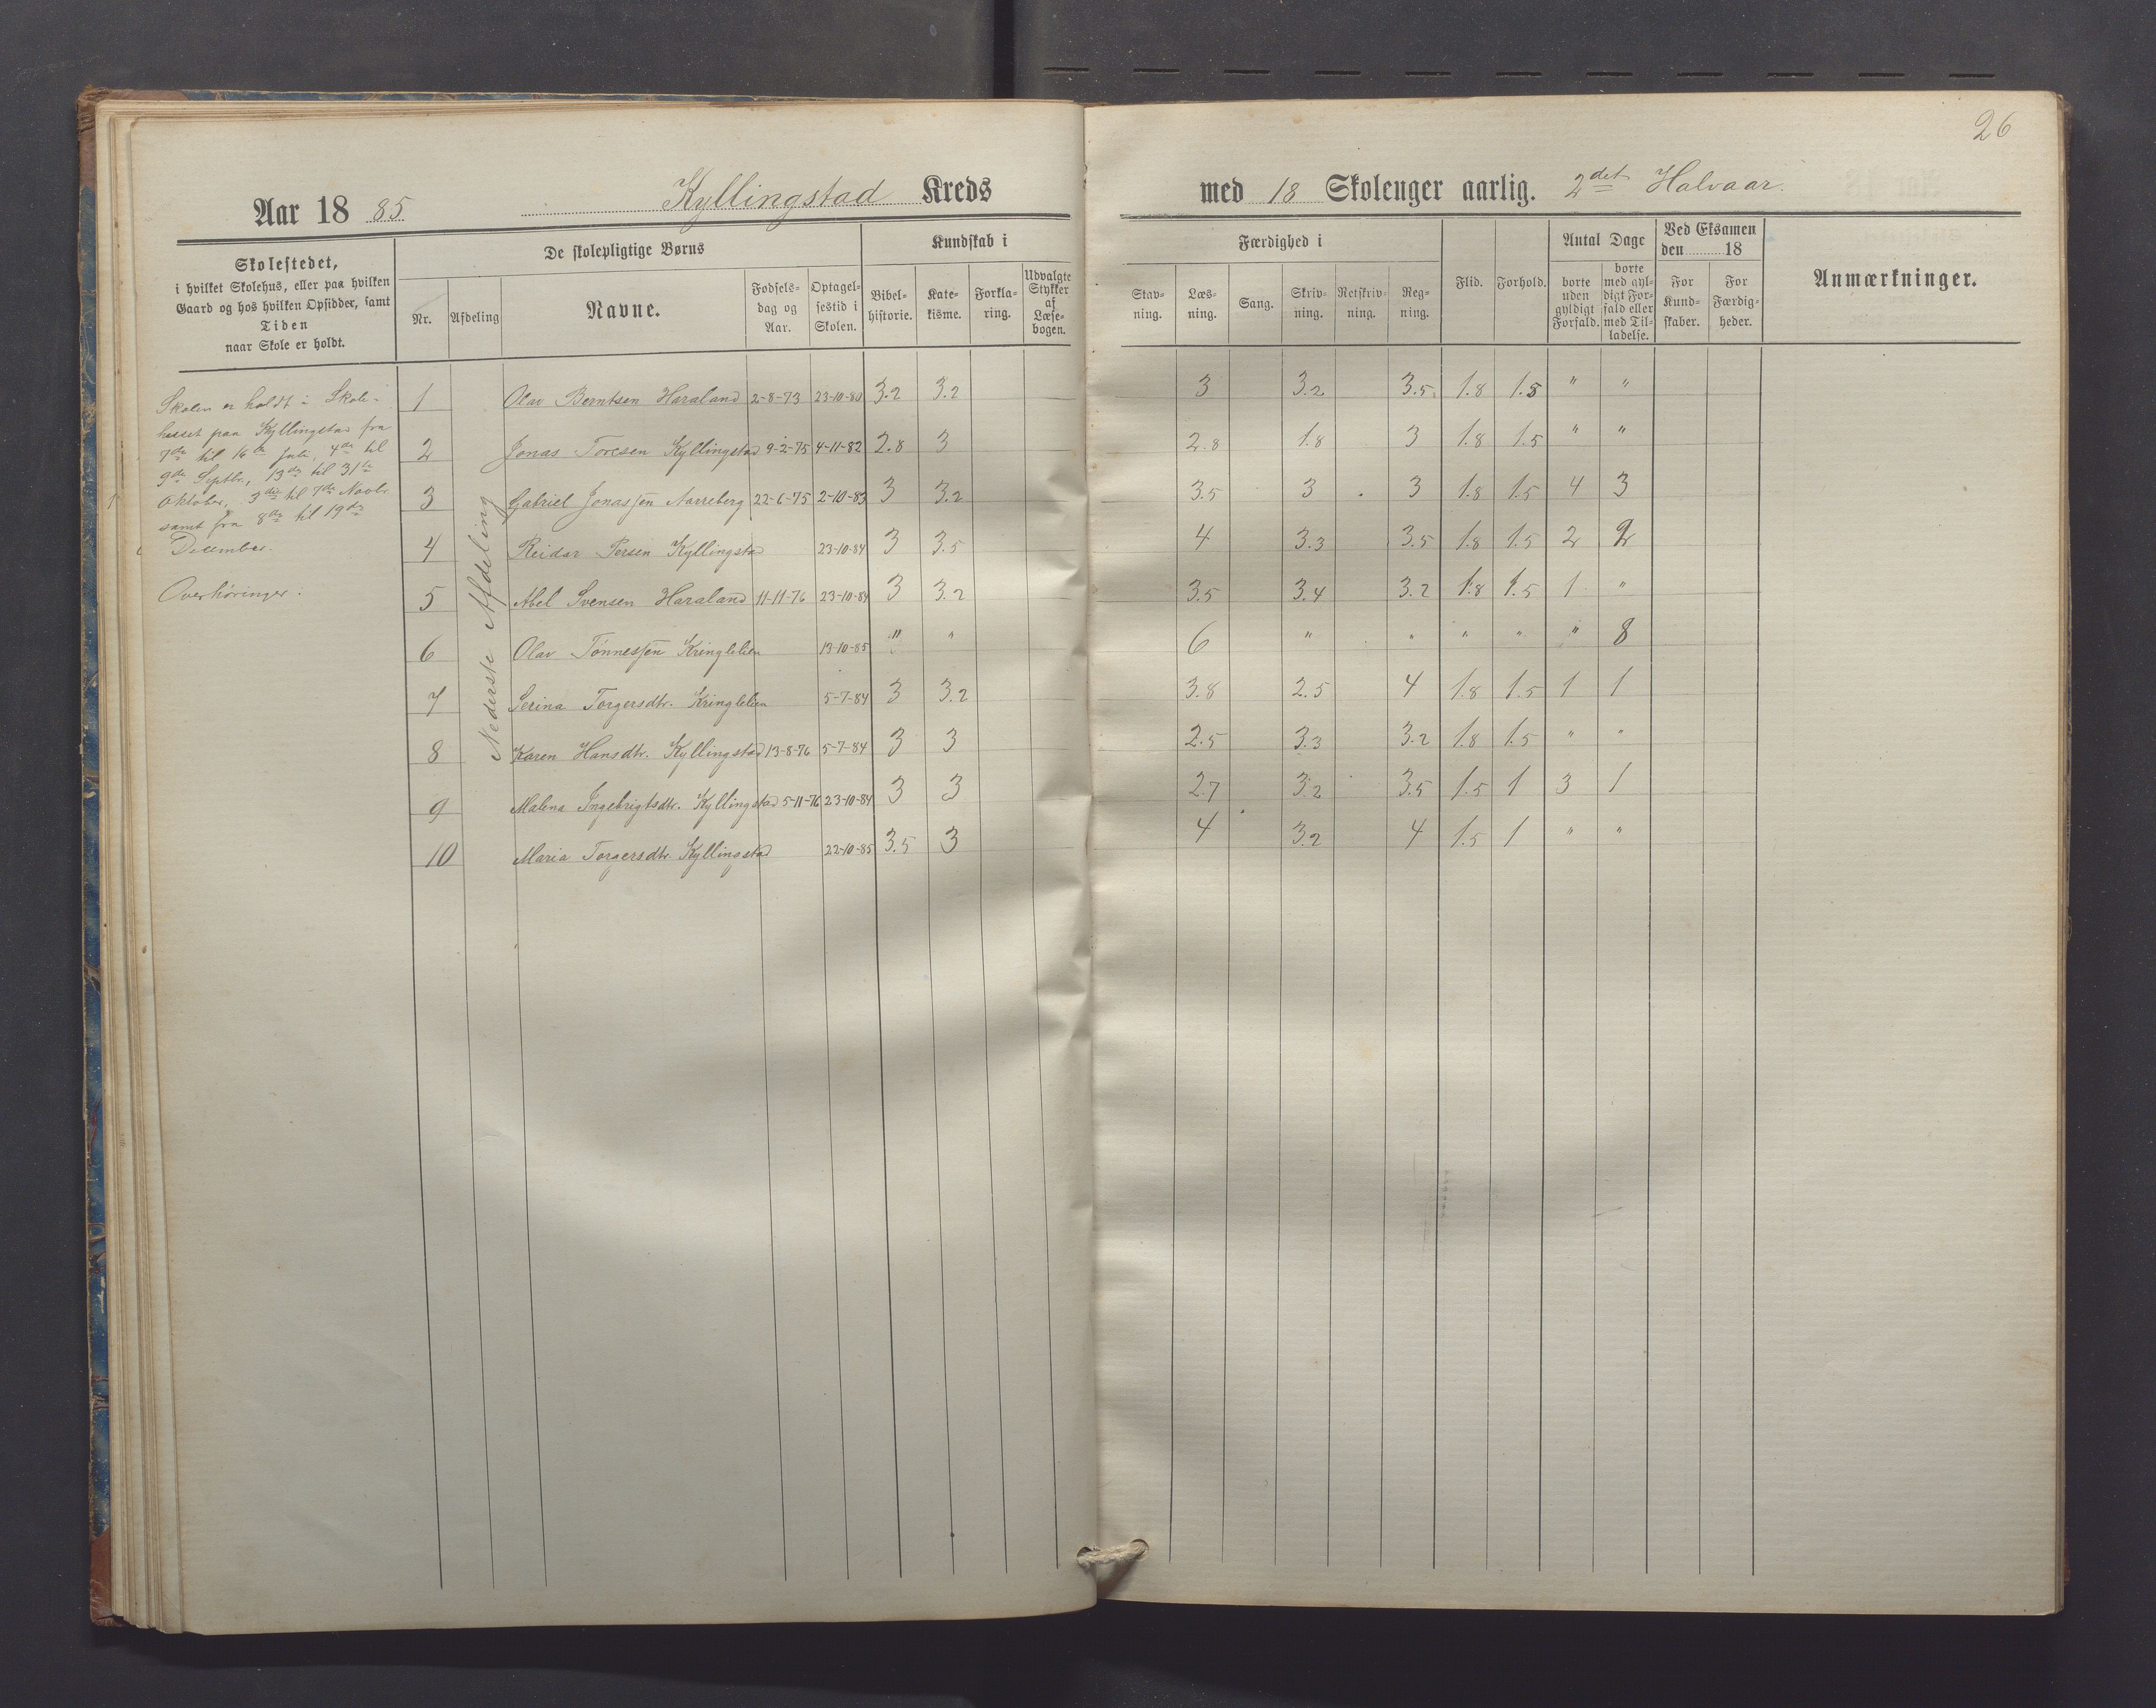 26
Aar 1885 Kyllingstad Kreds med 18 Skolenger aarlig. 2det Halvaar.
Skolestedet,
i hvilket Skolehus, eller paa hvilken
Gaard og hos hvilken Opsidder, samt
Tiden
naar Skole er holdt.
De skolepligtige Børns
Nr. Afdeling Navne. Fødsels-dag og Aar. Optagel-sestid i Skolen.
Kundskab i
Bibel-historie. Kate-kisme. Forkla-ring. Udvalgte Stykker af Læse-bogen.
Færdighed i
Stav-ning. Læs-ning. Sang. Skriv-ning. Retskriv-ning. Reg-ning.
Flid. Forhold.
Antal Dage
borte uden gyldigt Forfald. borte med gyl-digt For-fald eller med Til-ladelse.
Ved Eksamen
den 18
For Kund-skaber. For Færdig-heder.
Anmærkninger.
Skolen er holdt i Skole-
huset paa Kyllingstad fra
7de til 16de Juli, 4de til
9de Septbr., 13de til 31te
Oktober, 3die til 7de Novbr.
samt fra 8de til 19de
December.
Overhøringer.
Nederste Afdeling
1 Olav Berntsen Haraland 2-8-73 23-10-80 3.2 3.2 3 3.2 3.5 1.8 1.5 " "
2 Jonas Toresen Kyllingstad 9-2-75 4-11-82 2.8 3 2.8 1.8 3 1.8 1.5 " "
3 Gabriel Jonassen Aarreberg 22-6-75 2-10-83 3 3.2 3.5 3 3 1.8 1.5 4 3
4 Reidar Persen Kyllingstad 23-10-84 3 3.5 4 3.3 3.5 1.8 1.5 2 2
5 Abel Svensen Haraland 11-11-76 23-10-84 3 3.2 3.5 3.4 3.2 1.8 1.5 1 "
6 Olav Tønnessen Kringlelien 13-10-85 " " 6 " " " " " 8
7 Serina Torgersdtr. Kringlelien 5-7-84 3 3.2 3.8 2.5 4 1.8 1.5 1 1
8 Karen Hansdtr. Kyllingstad 13-8-76 5-7-84 3 3 2.5 3.3 3.2 1.8 1.5 " "
9 Malena Ingebrigtsdtr. Kyllingstad 5-11-76 23-10-84 3 3 2.7 3.2 3.5 1.5 1 3 1
10 Maria Torgersdtr. Kyllingstad 22-10-85 3.5 3 4 3.2 4 1.5 1 " "